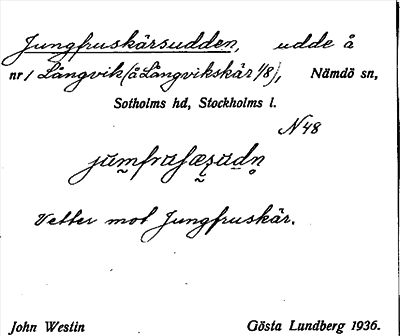 Jungfruskärsudden, udde å
nr 1 Långvik (å Långvikskär 1/8), Nämdö sn,
Sotholms hd, Stockholms l.
N48
Vetter mot Jungfruskär.
John Westin Gösta Lundberg 1936.